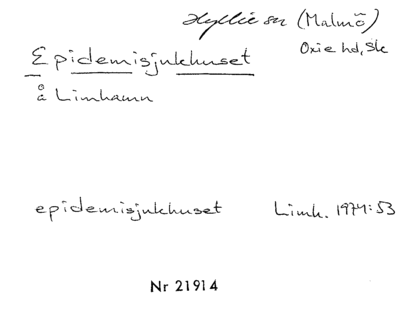 Hyllie sn (Malmö)
Oxie hd, Sk
Epidemisjukhuset
å Limhamn
epidemisjukhuset Limh. 1974:53
Nr 21914